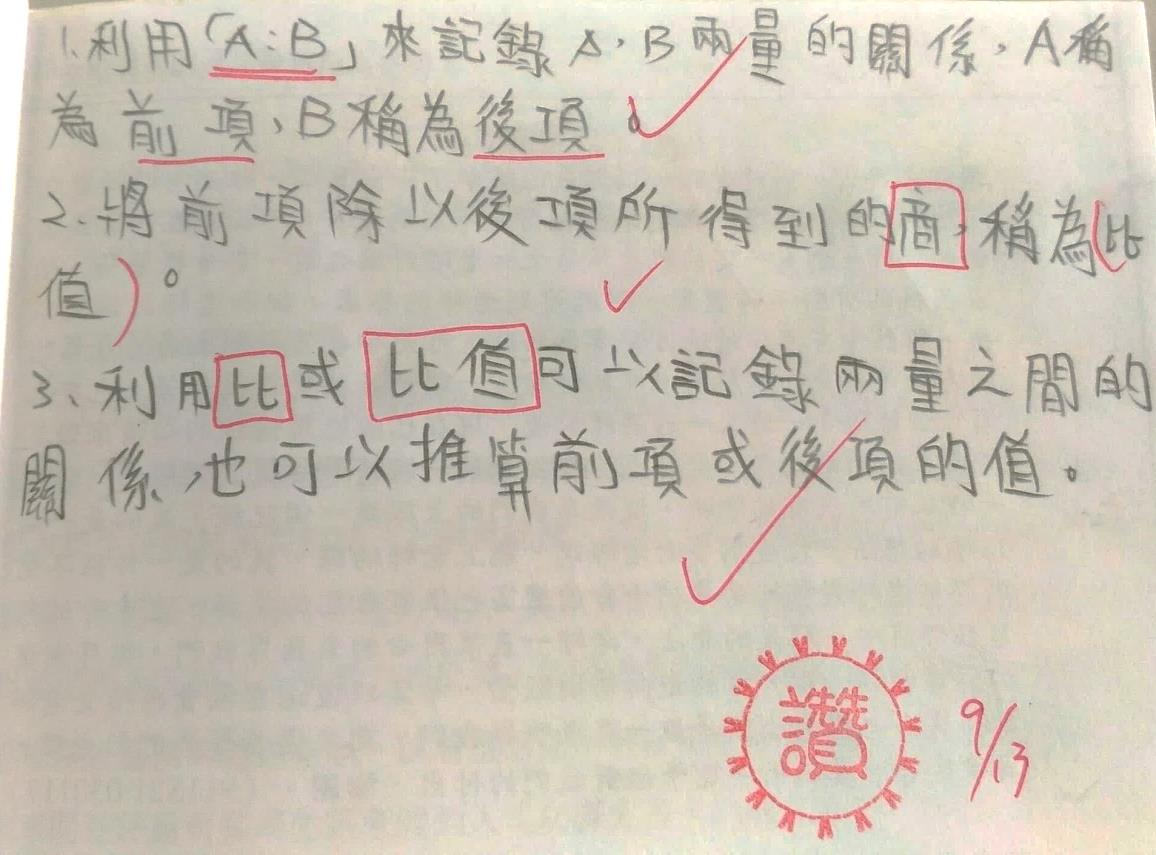 1.利用「A:B」來記錄A、B兩量的關係,A稱
為前項、B稱為後項。
2.將前項除以後項所得到的商,稱為(比
值)。
3、利用比或比值可以記錄兩量之間的
關係,也可以推算前項或後項的值。
讚
9/13